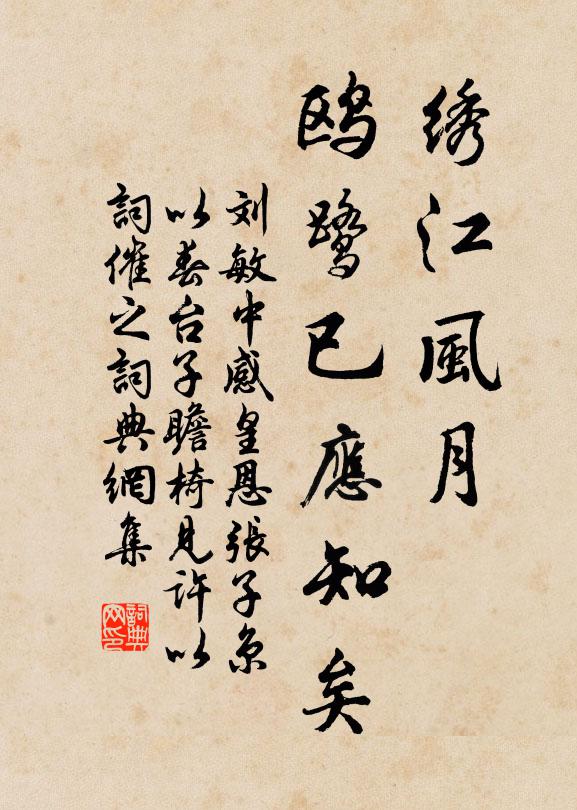 绣江風月
鸥鹭已應知矣
刘敏中感皇恩張子京
以春台子瞻椅見許以
詞催之詞典網集
詞典网印